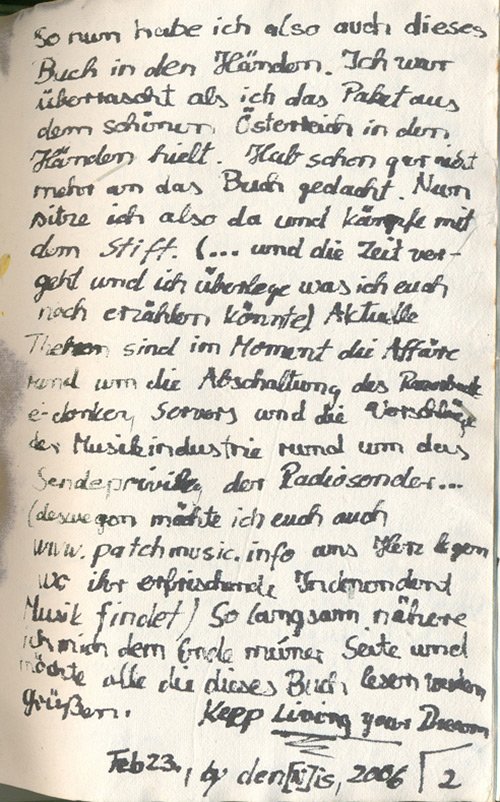 So nun habe ich also auch dieses
Buch in den Händen. Ich war
überrascht als ich das Paket aus
dem schönen Österreich in den
Händen hielt. Hab schon gar nicht
mehr an das Buch gedacht. Nun
sitze ich also da und kämpfe mit
dem Stift. (... und die Zeit ver-
geht und ich überlege was ich euch
noch erzählen könnte) Aktuelle
Themen sind im Moment die Affäre
rund um die Abschaltung des
e-donkey Servers und die Vorschläge
der Musikindustrie rund um das
Sendeprivileg der Radiosender...
(deswegen möchte ich euch auch
www.patchmusic.info ans Herz legen
wo ihr erfrischende Independend
Musik findet) So langsam nähere
ich mich dem Ende meiner Seite und
möchte alle die dieses Buch lesen werden
grüßen. Kepp Living your Dream
Feb 23., by den[N]is, 2006 2